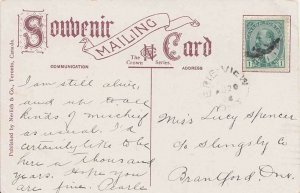 Souvenir Mailing Card
The Crown Series
COMMUNICATION
ADDRESS
Published by Nerlich & Co., Toronto, Canada.
I am still alive,
and up to all
kinds of mischief
as usual. I'd
certainly like to be
here a thousand
years. Hope you
are fine. Pearle
Miss Lucy Spencer
c/o Slingsby Co
Brantford Ont.